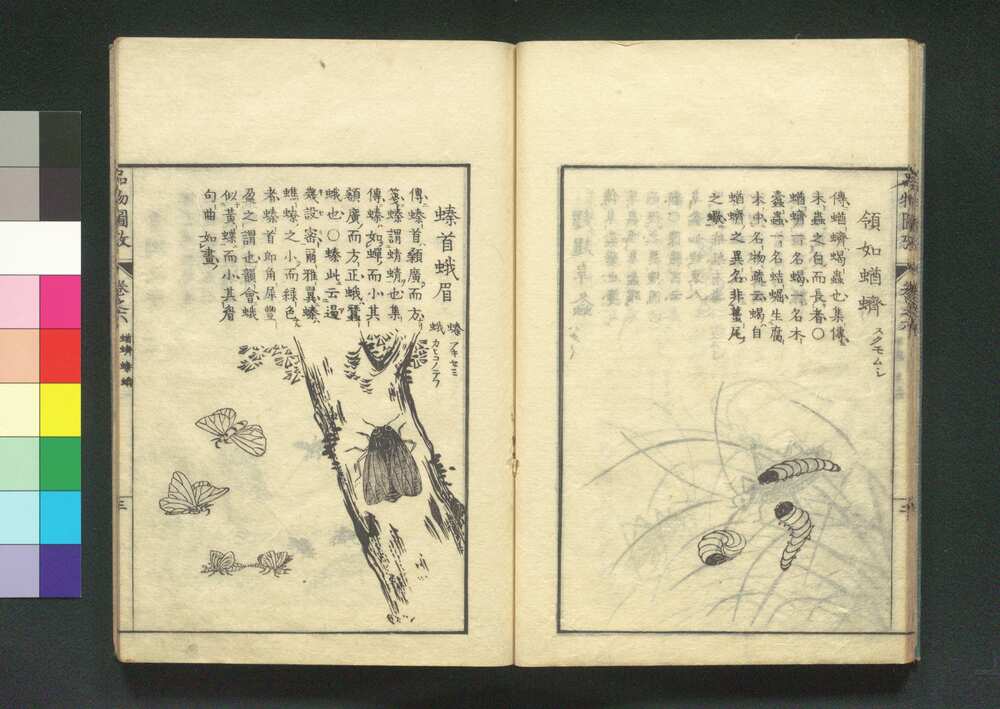 領如蝤蠐
スクモムシ
傳蝤蠐蝎蟲也集傳
木蟲之白而長者〇
蝤蠐一名蝎一名木
蠹蟲一名蛣𧌑生腐
木中名物疏云蝎自
蝤蠐之異名非蠆尾
之蠍
螓首蛾眉
螓 アキセミ
蛾 カヒコノテフ
傳螓首顙廣而方
箋螓謂蜻蜻也集
傳螓如蟬而小其
額廣而方正蛾蠶
蛾也〇螓此云還
幾設密爾雅翼螓
蟭螓之小而緑色
者螓首即角犀豐
盈之謂也韻會蛾
似黄蝶而小其眉
句曲如畫
品物圖攷
卷之六
蝤蠐 螓 蛾
三